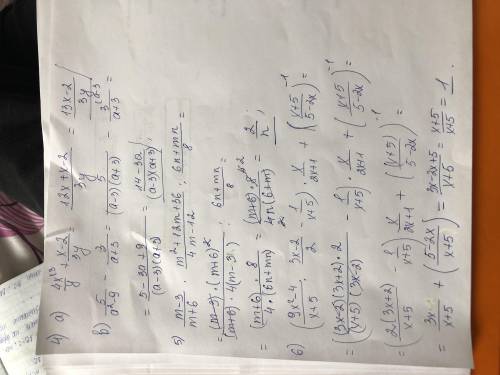 4) a) 4x\3/y + (x-2)/3y = (12x+x-2)/3y = (13x-2)/3y
b) 5/(a²-9) - 3/(a+3) = 5/((a-3)(a+3)) - 3\a-3/(a+3) =
= (5-3a+9)/((a-3)(a+3)) = (14-3a)/((a-3)(a+3));
5) (m-3)/(m+6) · (m²+12m+36)/(4m-12) : (6n+mn)/8 =
= ((m-3)·(m+6)²)/((m+6)·4(m-3)) : (6n+mn)/8 =
= (m+6)/4 · 8/(6n+mn) = ((m+6)·8)/(4n(6+m)) = 2/n;
6) ((9x²-4)/(x+5) : (3x-2)/2 - 1/(x+5)) · x/(2x+1) + ((x+5)/(5-2x))⁻¹ =
= (((3x-2)(3x+2)·2)/((x+5)(3x-2)) - 1/(x+5)) · x/(2x+1) + ((x+5)/(5-2x))⁻¹ =
= (2(3x+2)/(x+5) - 1/(x+5)) x/(2x+1) + ((x+5)/(5-2x))⁻¹ =
= 3x/(x+5) + ((5-2x)/(x+5)) = (3x-2x+5)/(x+5) = (x+5)/(x+5) = 1.